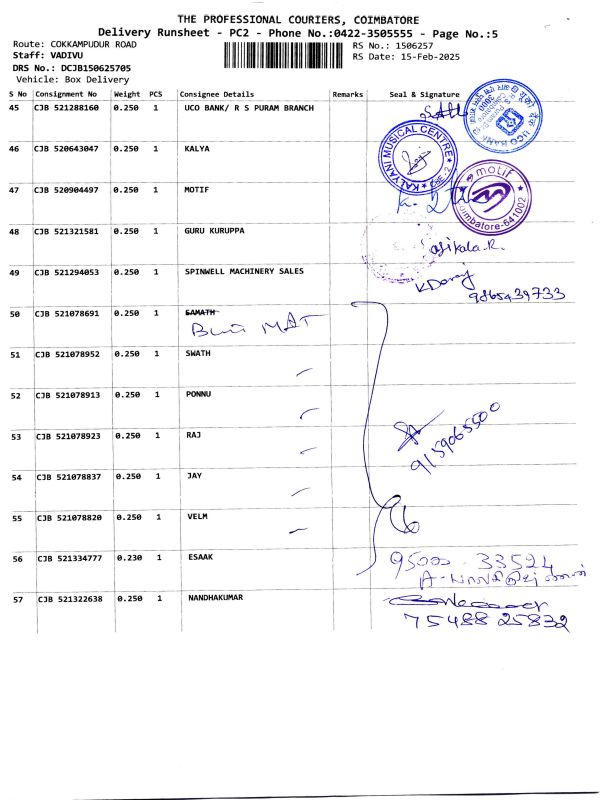 THE PROFESSIONAL COURIERS, COIMBATORE
Delivery Runsheet - PC2 - Phone No.:0422-3505555 - Page No.:5
Route: COKKAMPUDUR ROAD RS No.: 1506257
Staff: VADIVU RS Date: 15-Feb-2025
DRS No.: DCJB150625705
Vehicle: Box Delivery
S No Consignment No Weight PCS Consignee Details Remarks Seal & Signature
45 CJB 521288160 0.250 1 UCO BANK/ R S PURAM BRANCH
UCO BANK
46 CJB 520643047 0.250 1 KALYA
KALYANI MUSICAL CENTRE
CBE - 2
47 CJB 520904497 0.250 1 MOTIF
motif
Coimbatore-641002
48 CJB 521321581 0.250 1 GURU KURUPPA
Sasikala.R.
49 CJB 521294053 0.250 1 SPINWELL MACHINERY SALES
9865439733
50 CJB 521078691 0.250 1 SAMATH
MAT
51 CJB 521078952 0.250 1 SWATH
52 CJB 521078913 0.250 1 PONNU
53 CJB 521078923 0.250 1 RAJ
9159065500
54 CJB 521078837 0.250 1 JAY
55 CJB 521078820 0.250 1 VELM
56 CJB 521334777 0.230 1 ESAAK
95000 33524
57 CJB 521322638 0.250 1 NANDHAKUMAR
75488 25832